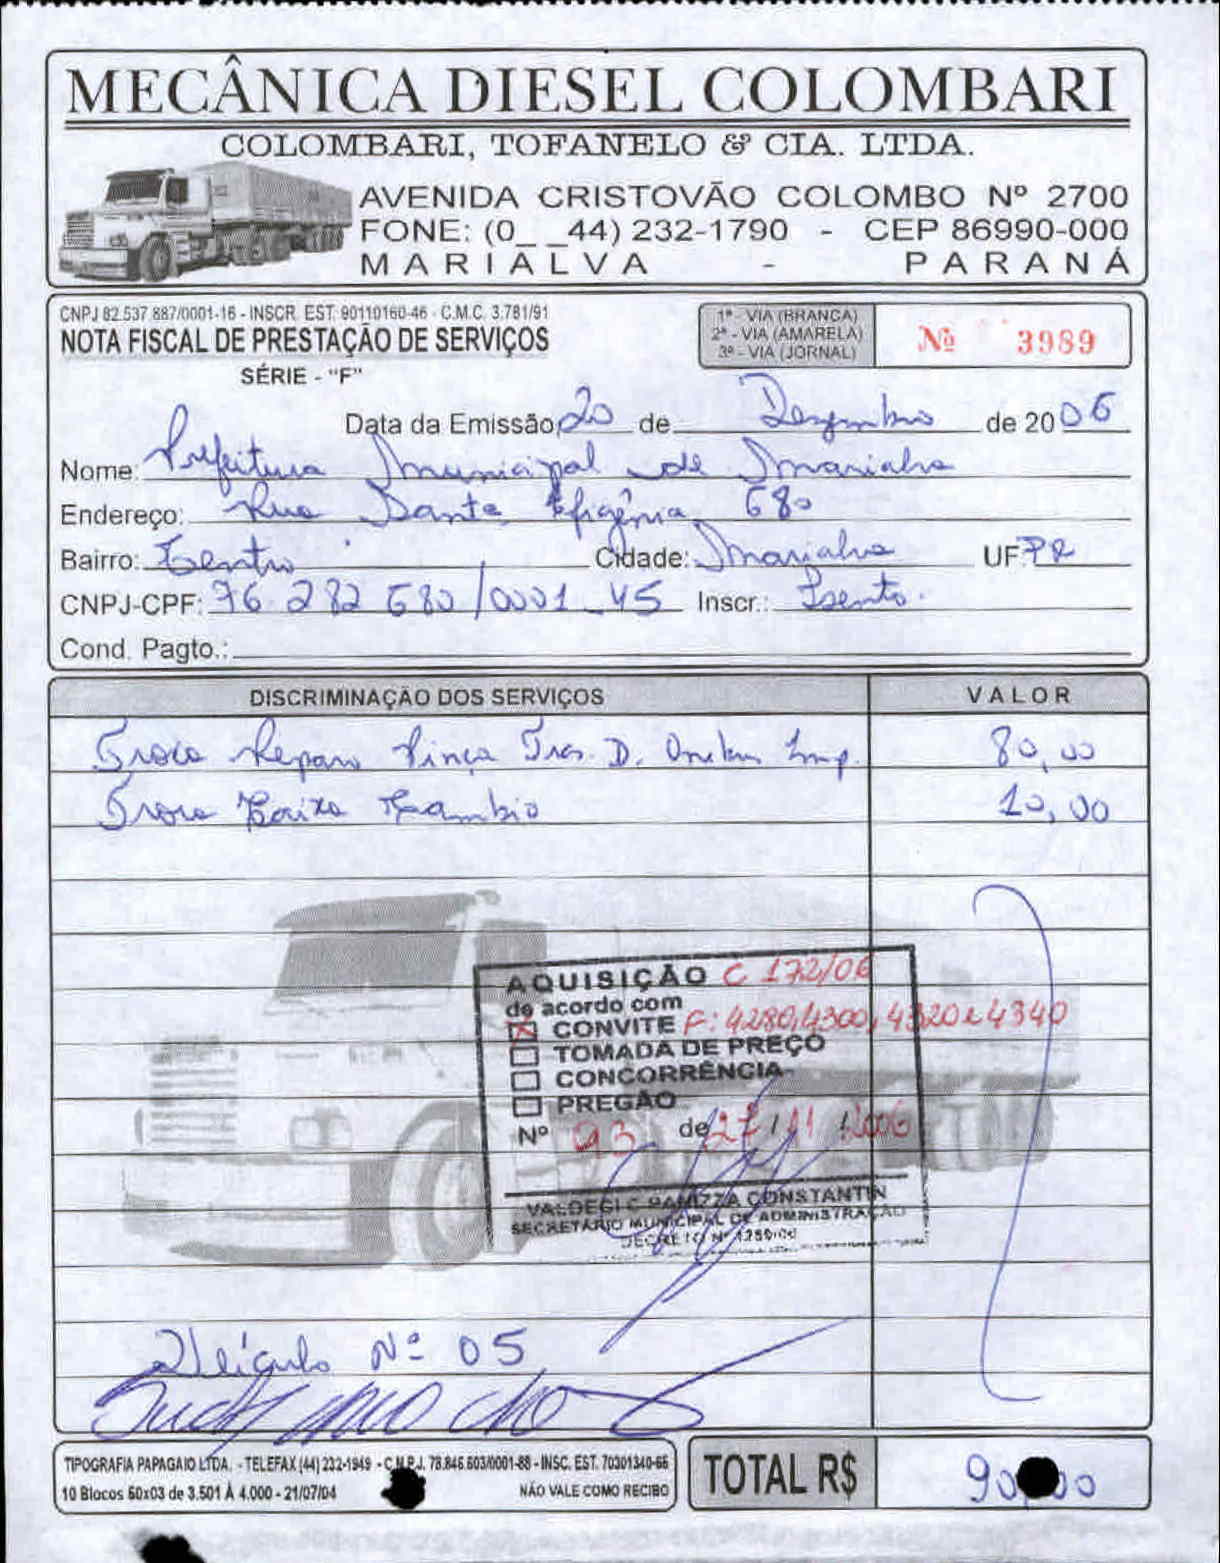 MECÂNICA DIESEL COLOMBARI
COLOMBARI, TOFANELO & CIA. LTDA.
AVENIDA CRISTOVÃO COLOMBO Nº 2700
FONE: (0_ _44) 232-1790 - CEP 86990-000
MARIALVA - PARANÁ
CNPJ 82.537.887/0001-16 - INSCR. EST. 90110160-46 - C.M.C. 3.781/91
NOTA FISCAL DE PRESTAÇÃO DE SERVIÇOS
SÉRIE - "F"
1ª - VIA (BRANCA)
2ª - VIA (AMARELA)
3ª - VIA (JORNAL)
Nº 3989
Data da Emissão 20 de Dezembro de 2006
Nome: Prefeitura Municipal de Marialva
Endereço: Rua Santa Efigênia 680
Bairro: Centro Cidade: Marialva UF PR
CNPJ-CPF: 76 282 680/0001-45 Inscr.: Isento.
Cond. Pagto.:
DISCRIMINAÇÃO DOS SERVIÇOS VALOR
Troca Reparo Pinça Tras. D. 80,00
Troca Caixa Cambio 10,00
AQUISIÇÃO C 172/06
de acordo com
X CONVITE F: 4280,4300,4320 e 4340
TOMADA DE PREÇO
CONCORRÊNCIA
PREGÃO
Nº 93 de 27/11/2006
CONSTANTIN
SECRETÁRIO MUNICIPAL DE ADMINISTRAÇÃO
DECRETO Nº
Veículo Nº 05
TIPOGRAFIA PAPAGAIO LTDA. - TELEFAX (44) 232-1949 - C.N.P.J. 78.846.603/0001-88 - INSC. EST. 70301340-66
10 Blocos 50x03 de 3.501 À 4.000 - 21/07/04 NÃO VALE COMO RECIBO
TOTAL R$ 90,00